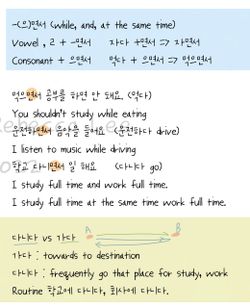 -(으)면서 (while, and, at the same time)
Vowel, ㄹ + -면서 자다 +면서 => 자면서
Consonant + 으면서 먹다 + 으면서 => 먹으면서
먹으면서 공부를 하면 안 돼요. (먹다)
You shouldn't study while eating
운전하면서 음악을 들어요 (운전하다 drive)
I listen to music while driving
학교 다니면서 일 해요 (다니다 go)
I study full time and work full time.
I study full time at the same time work full time.
다니다 vs 가다 A B
가다 : towards to destination
다니다 : frequently go that place for study, work
Routine 학교에 다니다, 회사에 다니다.